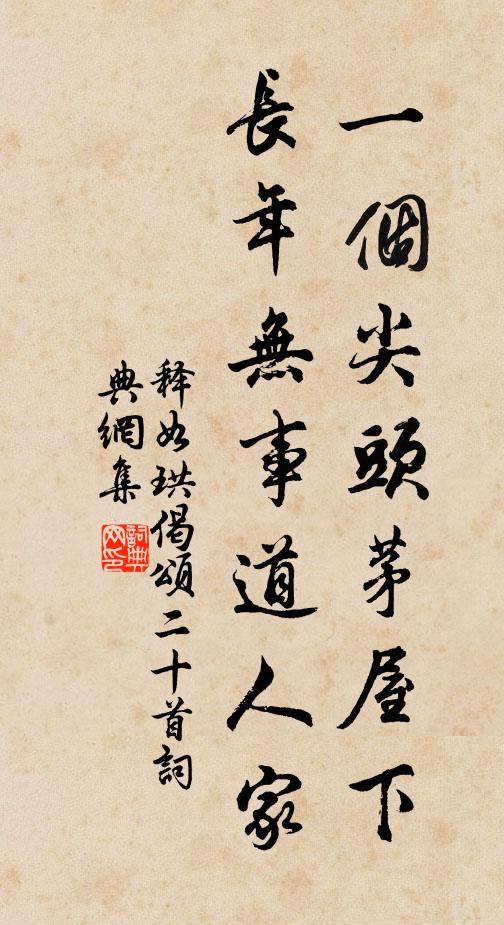 一個尖頭茅屋下
長年無事道人家
释如珙偈頌二十首詞
典網集
詞典网印